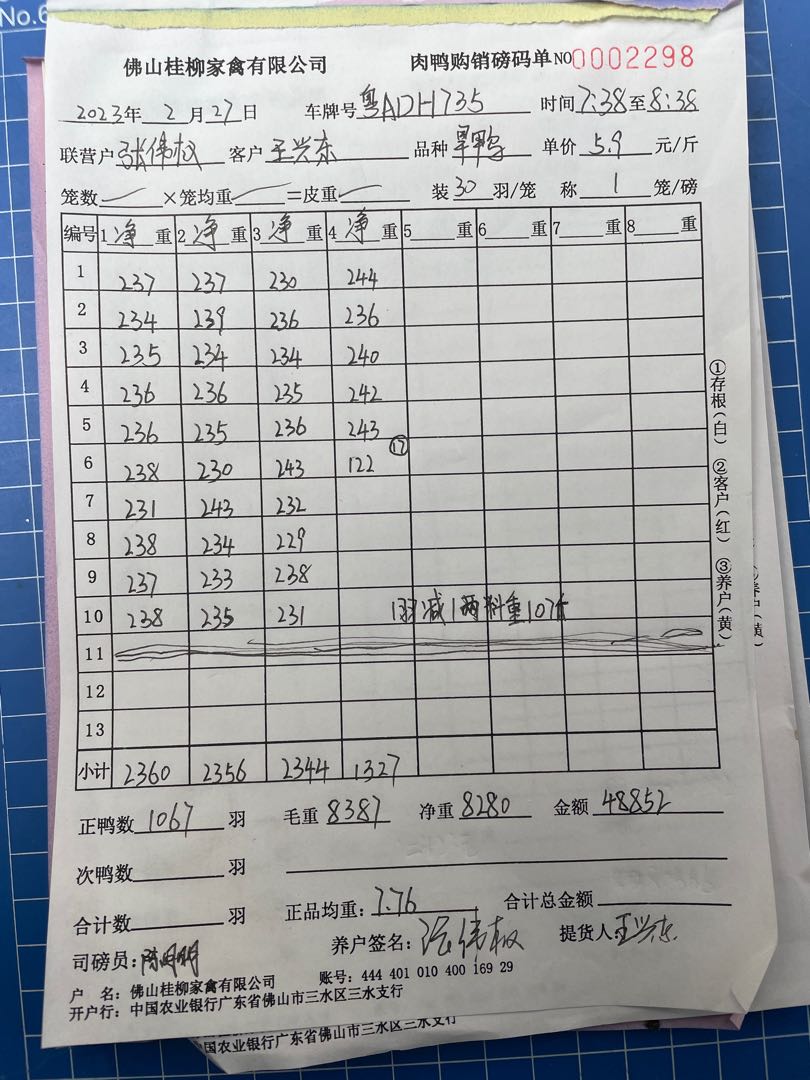 No.6
佛山桂柳家禽有限公司 肉鸭购销磅码单 NO 0002298
2023年 2 月 27 日 车牌号 粤ADH735 时间 7:38 至 8:38
联营户 张伟权 客户 王兴东 品种 旱鸭 单价 5.9 元/斤
笼数 ×笼均重 =皮重 装 30 羽/笼 称 1 笼/磅
编号 1 净 重 2 净 重 3 净 重 4 净 重 5 重 6 重 7 重 8 重
1 237 237 230 244
2 234 239 236 236
3 235 234 234 240
4 236 236 235 242
5 236 235 236 243
6 238 230 243 122 ⑰
7 231 243 232
8 238 234 229
9 237 233 238
10 238 235 231 1羽减1两料重107斤
11
12
13
小计 2360 2356 2344 1327
正鸭数 1067 羽 毛重 8387 净重 8280 金额 48852
次鸭数 羽
合计数 羽 正品均重: 7.76 合计总金额
司磅员: 养户签名: 张伟权 提货人 王兴东
户 名: 佛山桂柳家禽有限公司 账号: 444 401 010 400 169 29
开户行: 中国农业银行广东省佛山市三水区三水支行
①存根(白) ②客户(红) ③养户(黄)
养户(黄)
国农业银行广东省佛山市三水区三水支行